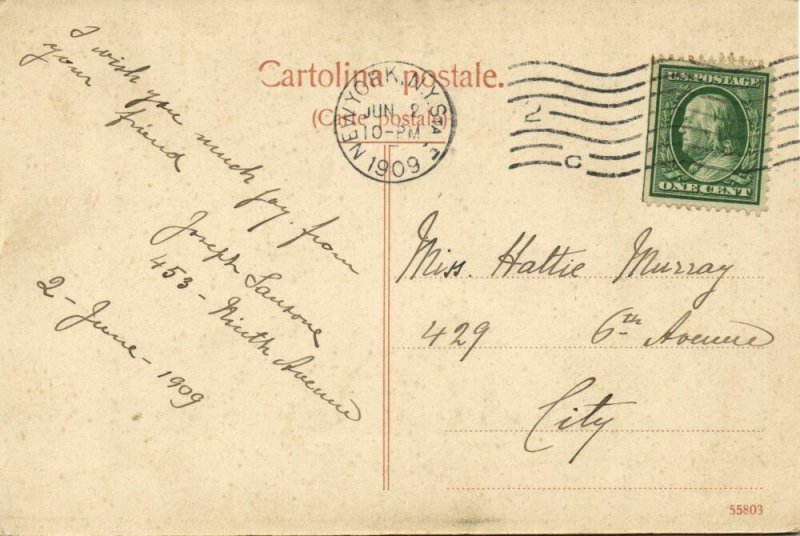 Cartolina postale.
(Carte postale)
NEW YORK, N.Y. STA. E
JUN 2
10-PM
1909
2
C
U.S. POSTAGE
ONE CENT
I wish you much joy. from
your friend
Joseph Sansone
453 - Ninth Avenue
2 - June - 1909
Miss. Hattie Murray
429 6th Avenue
City
55803